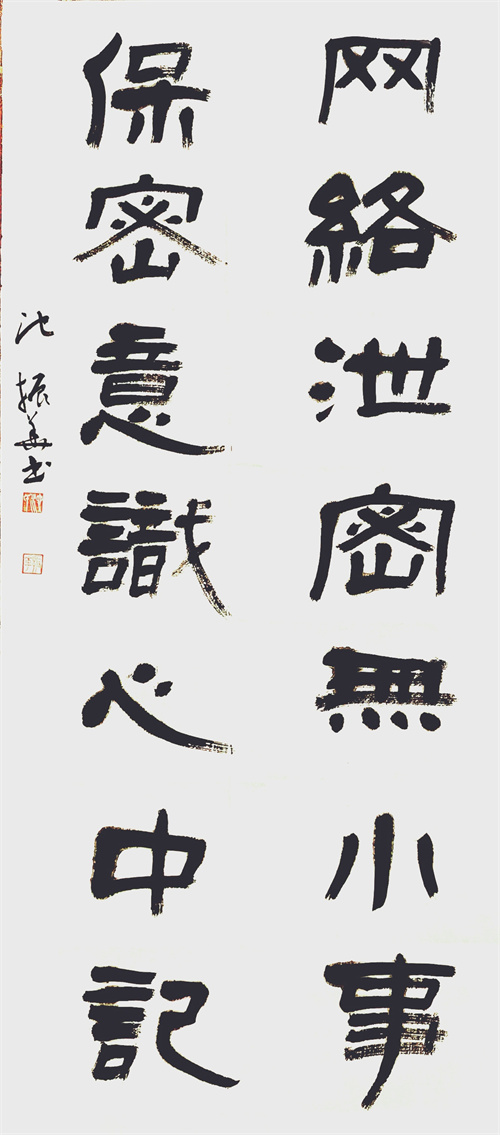 网络泄密無小事
保密意識心中記
沈振华书